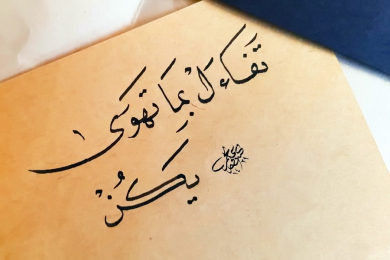 تَفَاءَلْ بِمَا تَهْوَى
يَكُنْ